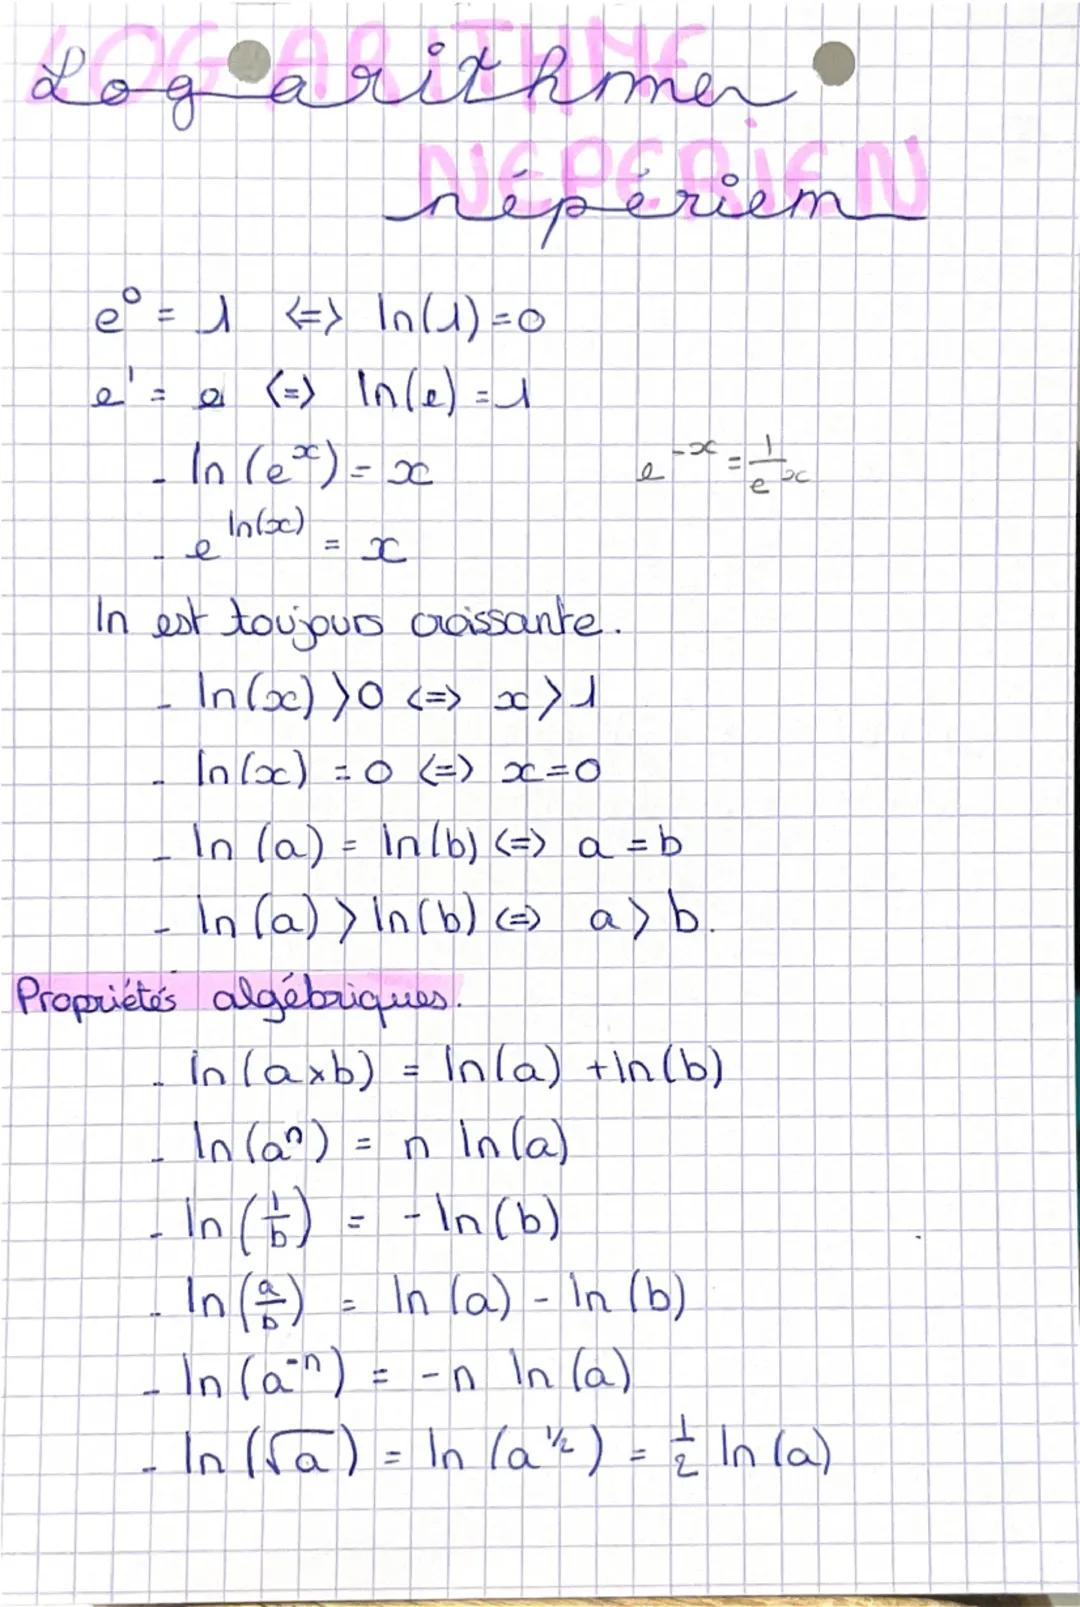 LOGARITHME
Logarithme
NÉPÉRIEN
népérien
e⁰ = 1 <=> ln(1)=0
e¹ = e <=> ln(e) = 1
- ln (eˣ) = x
e⁻ˣ = 1/eˣ
- e^ln(x) = x
ln est toujours croissante.
- ln(x) >0 <=> x>1
- ln(x) = 0 <=> x=0
- ln (a) = ln(b) <=> a = b
- ln (a) > ln(b) <=> a > b.
Propriétés algébriques.
- ln (a×b) = ln(a) + ln(b)
- ln(aⁿ) = n ln(a)
- ln (1/b) = - ln(b)
- ln (a/b) = ln (a) - ln (b)
- ln (a⁻ⁿ) = -n ln (a)
- ln (√a) = ln (a^1/2) = 1/2 ln (a)